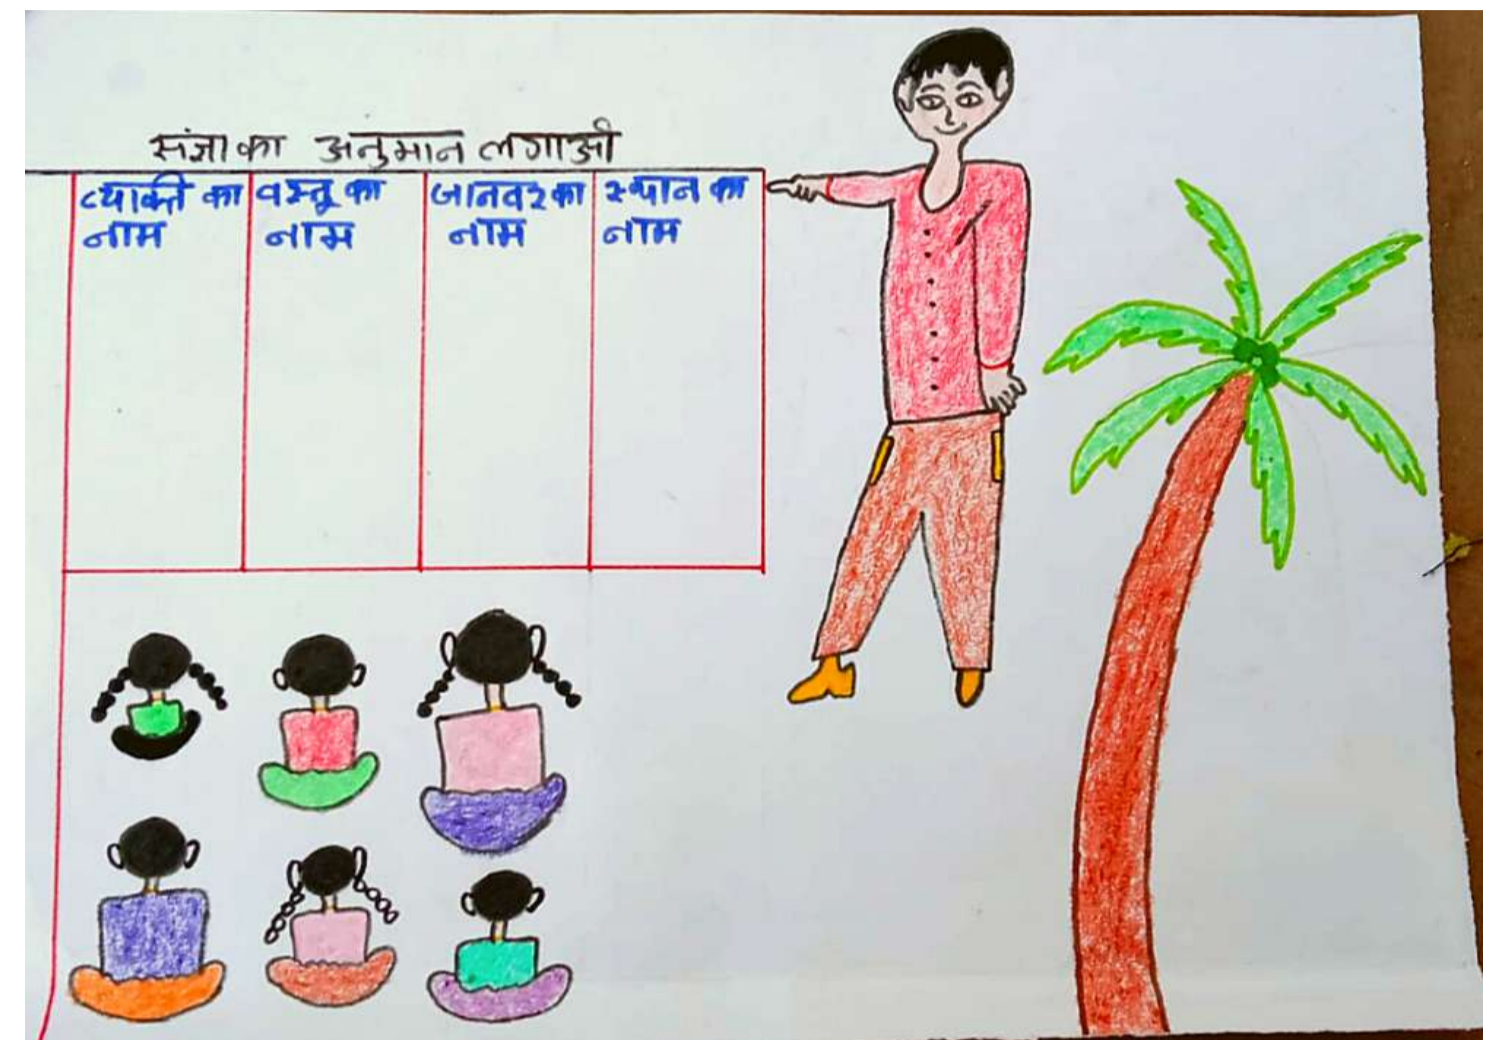 संज्ञा का अनुमान लगाओ
व्याक्ती का नाम
वस्तू का नाम
जानवर का नाम
स्थान का नाम